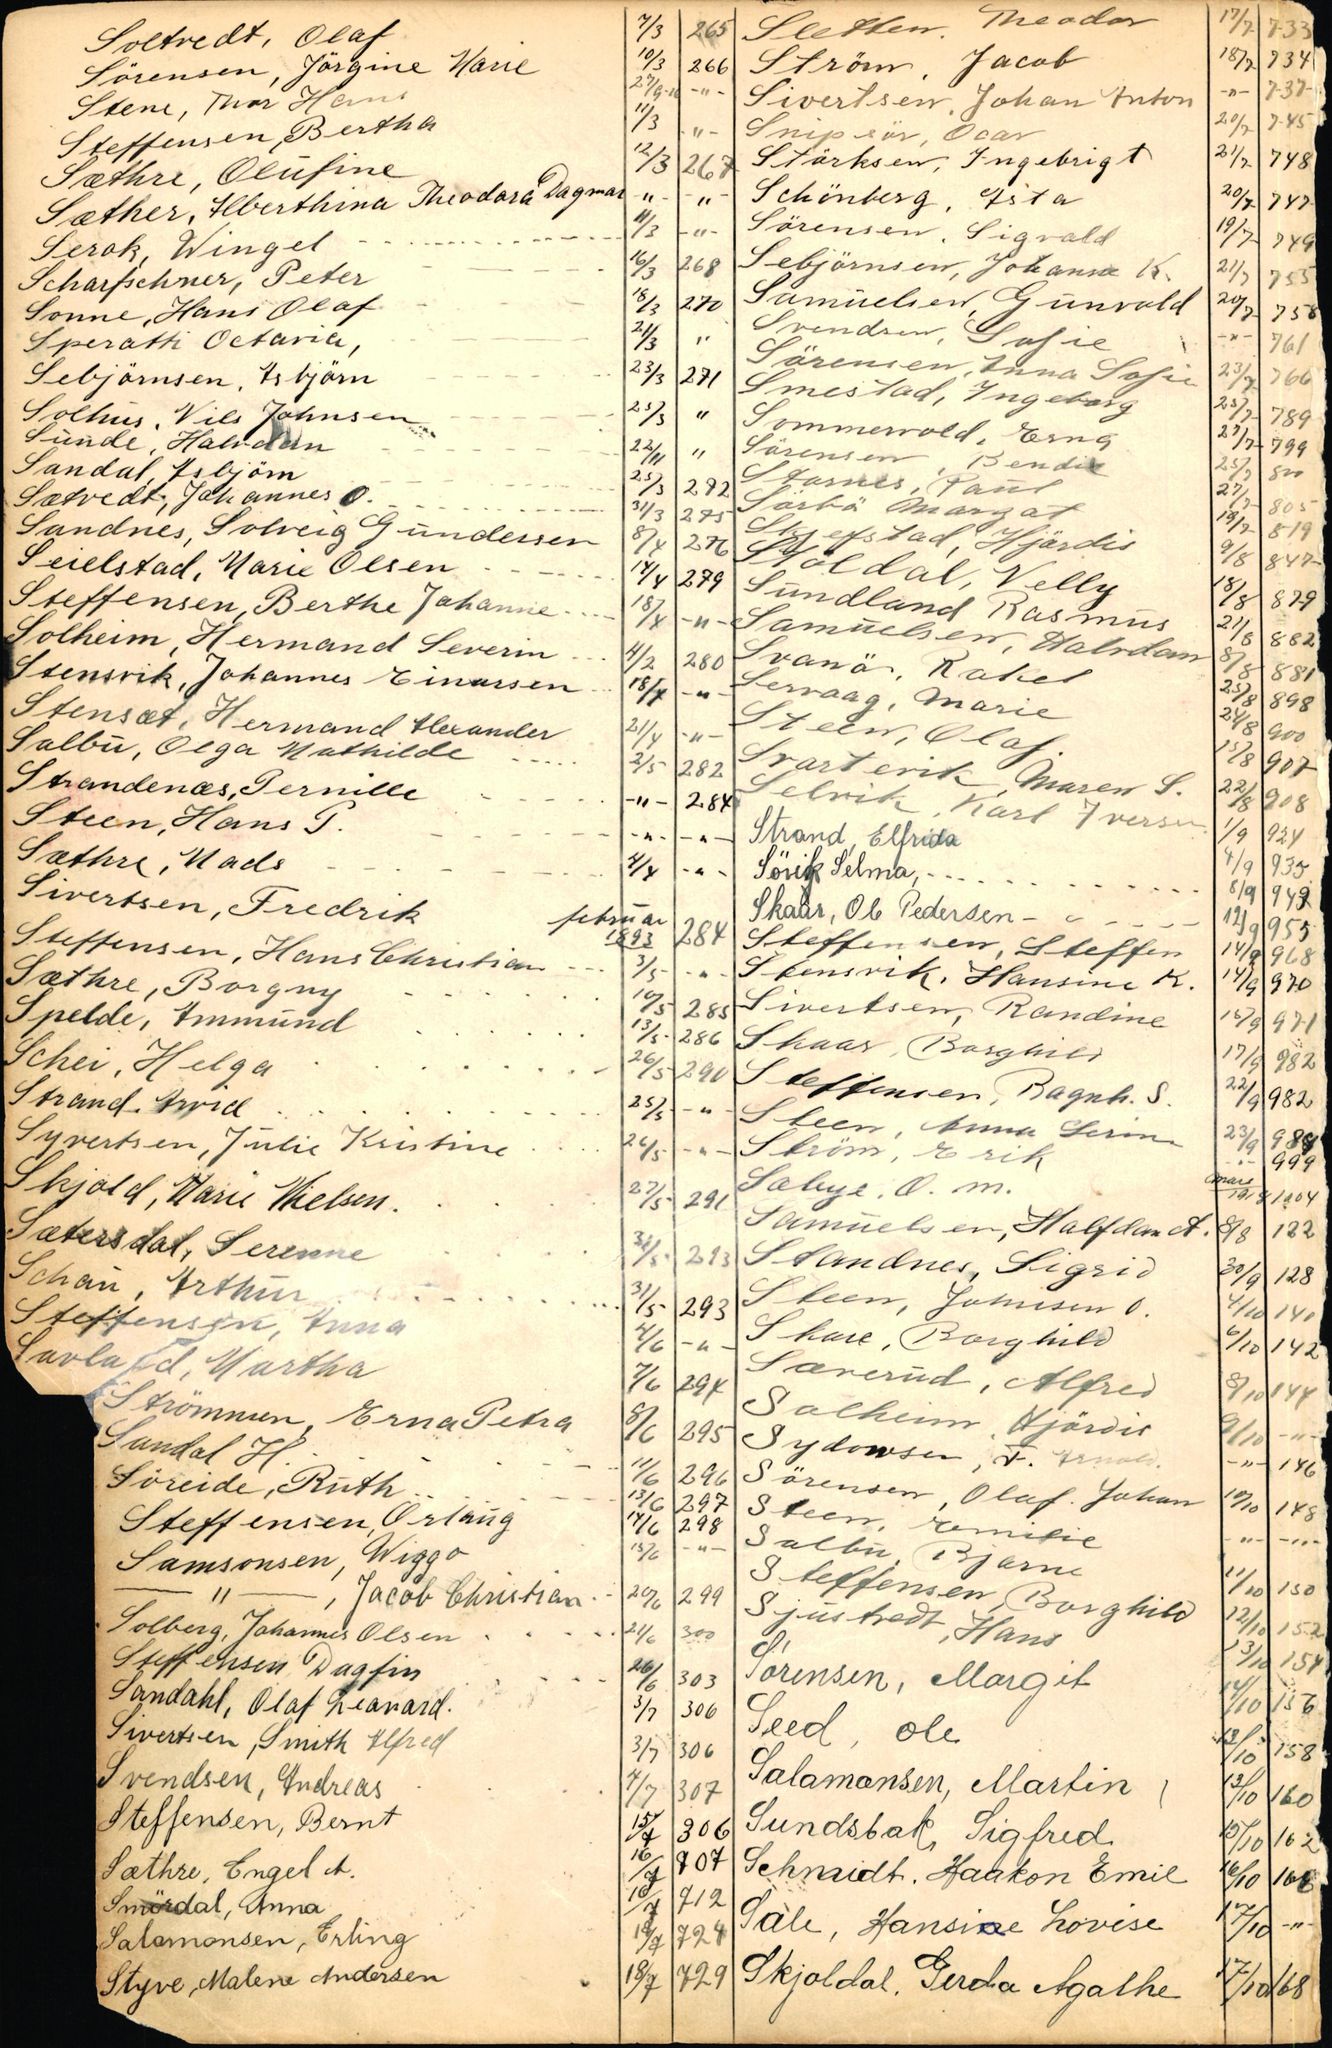 Soltvedt, Olaf 7/3 265
Sörensen, Jörgine Marie 10/3 266
Stene, Thor Hans 27/9-10 -"-
Steffensen, Bertha 11/3 -"-
Sæthre, Olufine 12/3 267
Sæther, Alberthina Theodora Dagmar "- -"
Serok, Wingel 11/3 -"-
Scharfschner, Peter 16/3 268
Sonne, Hans Olaf 18/3 270
Speratti Octavia, 21/3 "
Sebjörnsen, Asbjörn 23/3 271
Solhus, Nils Johnsen 25/3 "
Sunde, Halvdan 22/11 "
Sandal, Asbjörn 25/3 272
Sætvedt, Johannes O. 31/3 275
Sandnes, Solveig Gundersen 8/4 276
Seielstad, Marie Olsen 14/4 279
Steffensen, Berthe Johanne 18/4 -"-
Solheim, Hermand Severin 4/2 280
Stensvik, Johannes Einarsen 18/4 -"-
Stensæt, Hermand Alexander 21/4 -"-
Salbu, Olga Mathilde 2/5 282
Strandenæs, Pernille -"- 284
Steen, Hans P. -"- -"-
Sæthre, Mads 4/4 -"-
Sivertsen, Fredrik februar 1893 284
Steffensen, Hans Christian 3/5 -"-
Sæthre, Borgny 10/5 285
Spelde, Ammund 13/5 286
Schei, Helga 26/5 290
Strand, Arvid 25/5 -"-
Syvertsen, Julie Kristine 26/5 -"-
Skjold, Marie Nielsen. 27/5 291
Sætersdal, Serenne 293
Schau, Arthur 31/5 293
Steffensen, Anna 4/6 -"-
Martha 7/6 294
Strömmen, Erna Petra 8/6 295
Sundal H. 11/6 296
Söreide, Ruth 13/6 297
Steffensen, Orlaug 14/6 298
Samsonsen, Wiggo 15/6 -"-
— " —, Jacob Christian 20/6 299
Solberg, Johannes Olsen 21/6 300
Steffensen Dagfin 26/6 303
Sandahl, Olaf Leonard. 3/7 306
Sivertsen, Smith Alfred 3/7 306
Svendsen, Andreas 4/7 307
Steffensen, Bernt 15/7 306
Sæthre, Engel A. 16/7 707
Smördal, Anna 16/7 712
Salamonsen, Erling 18/7 724
Styve, Malene Andersen 18/7 729
Sletten, Theodor 17/7 733
Ström, Jacob 18/7 734
Sivertsen, Johan Anton -"- 737
Snipsör, Ocar 20/7 745
Störksen, Ingebrigt 21/7 748
Schönberg, Asta 20/7 747
Sörensen, Sigvald 19/7 749
Sebjörnsen, Johanna K. 21/7 755
Samuelsen, Gunvald 20/7 758
Svendsen, Sofie -"- 761
Sörensen, Anna Sofie 23/7 766
Smestad, Ingeborg 25/7 789
Sommervold, Erna 27/7 799
Sörensen, Bendix 25/7 800
Starnes, Paul 27/7 805
Sörbö Margat 18/7 819
Skjefstad, Hjördis 9/8 847
Stoldal, Nelly 18/8 879
Sundland Rasmus 21/8 882
Samuelsen, Halvdan 8/8 881
Svanö, Rakel 25/8 898
Servaag, Marie 24/8 900
Steen, Olaf. 15/8 907
Svartevik, Maren S. 22/8 908
Selvik, Karl Iversen 1/9 924
Strand, Elfrida 4/9 935
Sörik Selma, 8/9 949
Skaar, Ole Pedersen 12/9 955
Steffensen, Steffen 14/9 968
Stensvik, Hansine K. 14/9 970
Sivertsen, Randine 15/9 971
Skaar, Borghild 17/9 982
Steffensen, Ragnh. S. 22/9 982
Steen, Anna Serine 23/9 984
Ström, Erik 999
Sabye, O. M. 1004
Samuelsen, Halfdan A. 8/8 122
Standnes, Sigrid 30/9 128
Steen, Johnsen O. 4/10 140
Skare, Borghild 6/10 142
Sæverud, Alfred 8/10 144
Solheim, Hjördis 9/10 -"-
Sydowsen, F. Arnold. -"- 146
Sörensen, Olaf. Johan 10/10 148
Steen, Emilie -"- -"-
Salbu, Bjarne 11/10 150
Steffensen, Borghild 12/10 152
Sjustredt, Hans 13/10 154
Sörensen, Margit 14/10 156
Seed, Ole 13/10 158
Salamonsen, Martin 13/10 160
Sundsbak, Sigfred 15/10 162
Schmidt, Haakon Emil 16/10 166
Sale, Hansine Lovise 17/10 -"-
Skjoldal, Gerda Agathe 17/10 168